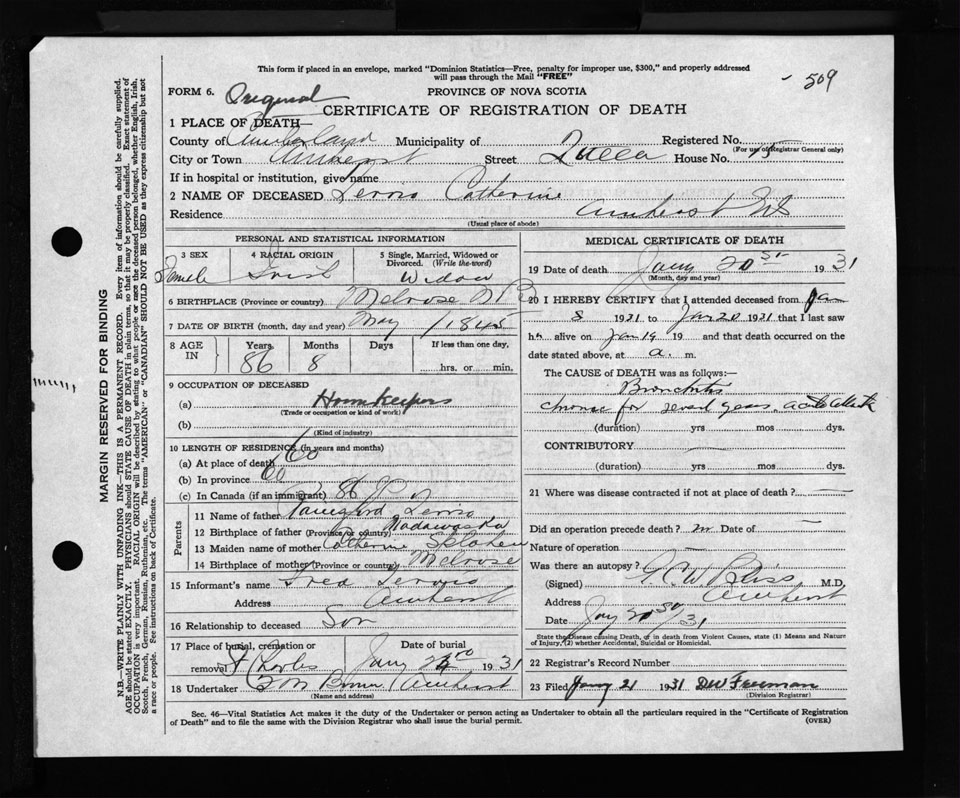 This form if placed in an envelope, marked "Dominion Statistics—Free, penalty for improper use, $300," and properly addressed
will pass through the Mail "FREE"
- 509
FORM 6. Original PROVINCE OF NOVA SCOTIA
CERTIFICATE OF REGISTRATION OF DEATH
1 PLACE OF DEATH—
County of Cumberland Municipality of Registered No.
(For use of Registrar General only)
City or Town Amherst Street House No. 15
If in hospital or institution, give name
2 NAME OF DECEASED Catherine
Residence Amherst NS
(Usual place of abode)
PERSONAL AND STATISTICAL INFORMATION
3 SEX 4 RACIAL ORIGIN 5 Single, Married, Widowed or
Divorced. (Write the word)
Female Irish Widow
6 BIRTHPLACE (Province or country) Melrose NB
7 DATE OF BIRTH (month, day and year) May 1845
8 AGE IN Years Months Days If less than one day,
86 8 hrs. or min.
9 OCCUPATION OF DECEASED
(a) Housekeepers
(Trade or occupation or kind of work)
(b)
(Kind of industry)
10 LENGTH OF RESIDENCE (in years and months)
(a) At place of death 60
(b) In province 60
(c) In Canada (if an immigrant) 86
Parents
11 Name of father
12 Birthplace of father (Province or country) Madawaska
13 Maiden name of mother Catherine
14 Birthplace of mother (Province or country) Melrose
15 Informant's name Fred
Address Amherst
16 Relationship to deceased Son
17 Place of burial, cremation or Date of burial
removal St Charles Jany 23rd 1931
18 Undertaker Brown Amherst
(Name and address)
MEDICAL CERTIFICATE OF DEATH
19 Date of death Jany 20 1931
(Month, day and year)
20 I HEREBY CERTIFY that I attended deceased from Jan
8 1931 to Jan 20 1931 that I last saw
h alive on Jan 19 19 and that death occurred on the
date stated above, at a. m.
The CAUSE of DEATH was as follows:—
Bronchitis
chronic for several years, acute attack
(duration) yrs mos dys.
CONTRIBUTORY
(duration) yrs mos dys.
21 Where was disease contracted if not at place of death?
Did an operation precede death? no Date of
Nature of operation
Was there an autopsy?
(Signed) Bliss, M.D,
Address Amherst
Date Jany 20 31
State the Disease causing Death, or in death from Violent Causes, state (1) Means and Nature
of Injury, (2) whether Accidental, Suicidal or Homicidal.
22 Registrar's Record Number
23 Filed Jany 21 1931 DW Freeman
(Division Registrar)
Sec. 46—Vital Statistics Act makes it the duty of the Undertaker or person acting as Undertaker to obtain all the particulars required in the "Certificate of Registration
of Death" and to file the same with the Division Registrar who shall issue the burial permit. (OVER)
MARGIN RESERVED FOR BINDING
N.B—WRITE PLAINLY WITH UNFADING INK—THIS IS A PERMANENT RECORD. Every item of information should be carefully supplied.
AGE should be stated EXACTLY. PHYSICIANS should STATE CAUSE OF DEATH in plain terms, so that it may be properly classified. Exact statement of
OCCUPATION is very important. RACIAL ORIGIN will be described by stating to what people or race the deceased person belonged, whether English, Irish,
Scotch, French, German, Russian, Ruthenian, etc. The terms "AMERICAN" or "CANADIAN" SHOULD NOT BE USED as they express citizenship but not
a race or people. See instructions on back of Certificate.